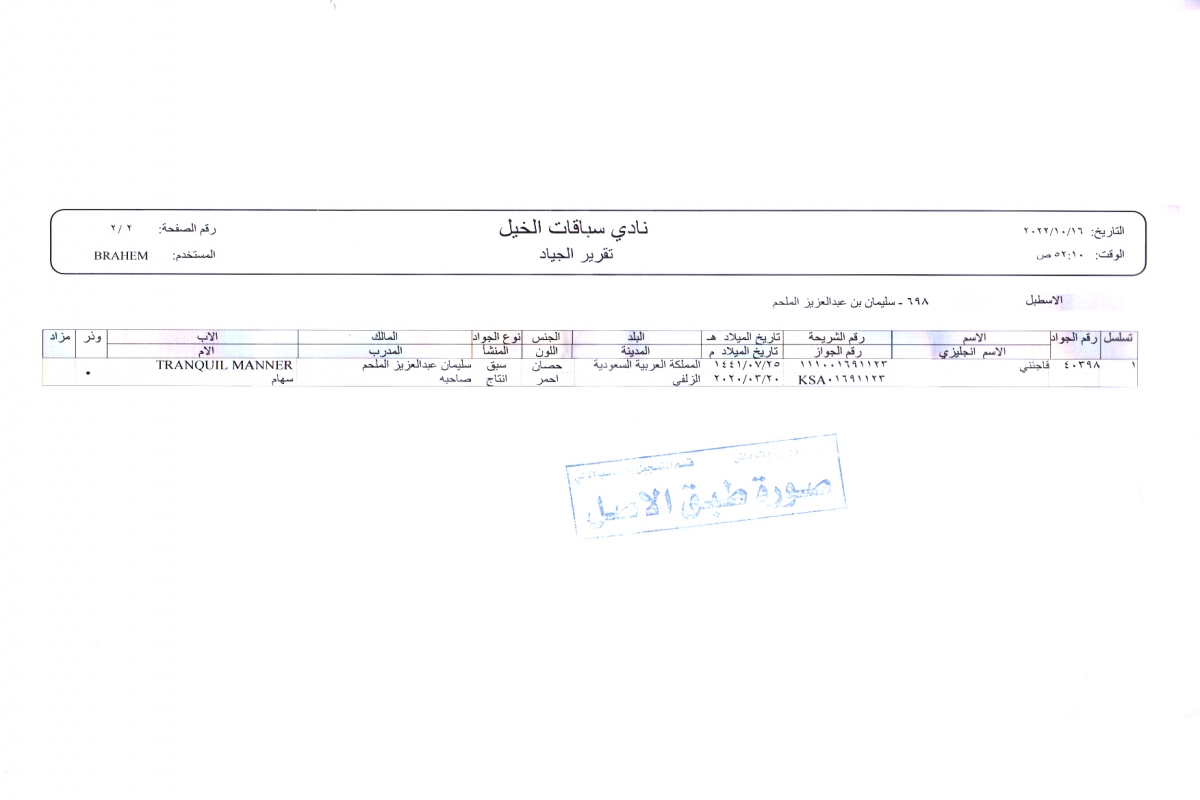 التاريخ: ٢٠٢٢/١٠/١٦
نادي سباقات الخيل
رقم الصفحة: ٢ / ٢
الوقت: ٥٢:١٠ ص
تقرير الجياد
المستخدم: BRAHEM
الاسطبل ٦٩٨ - سليمان بن عبدالعزيز الملحم
تسلسل رقم الجواد الاسم رقم الشريحة تاريخ الميلاد هـ البلد الجنس نوع الجواد المالك الاب وذر مزاد
الاسم انجليزي رقم الجواز تاريخ الميلاد م المدينة اللون المنشأ المدرب الام
١ ٤٠٣٩٨ فاجنني ١١١٠٠١٦٩١١٢٣ ١٤٤١/٠٧/٢٥ المملكة العربية السعودية حصان سبق سليمان عبدالعزيز الملحم TRANQUIL MANNER
KSA٠١٦٩١١٢٣ ٢٠٢٠/٠٣/٢٠ الزلفي احمر انتاج صاحبه سهام ٠
قسم التسجيل
صورة طبق الاصل